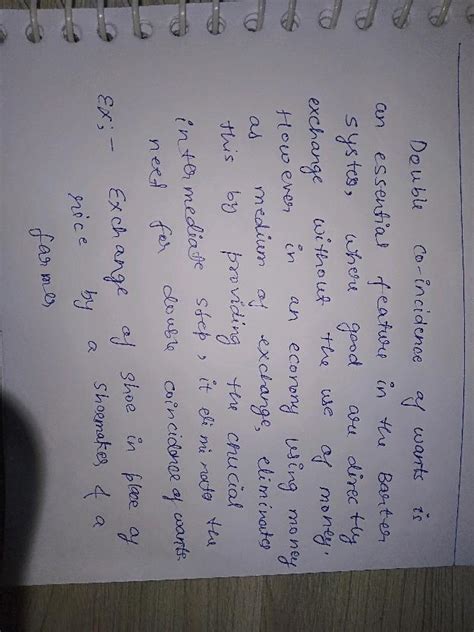 Double co-incidence of wants is
an essential feature in the Barter
system, where good are directly
exchange without the use of money.
However in an economy using money
as medium of exchange, eliminates
this by providing the crucial
intermediate step, it eliminates the
need for double coincidence of wants.
Ex;- Exchange of shoe in place of
rice by a shoemaker & a
farmer